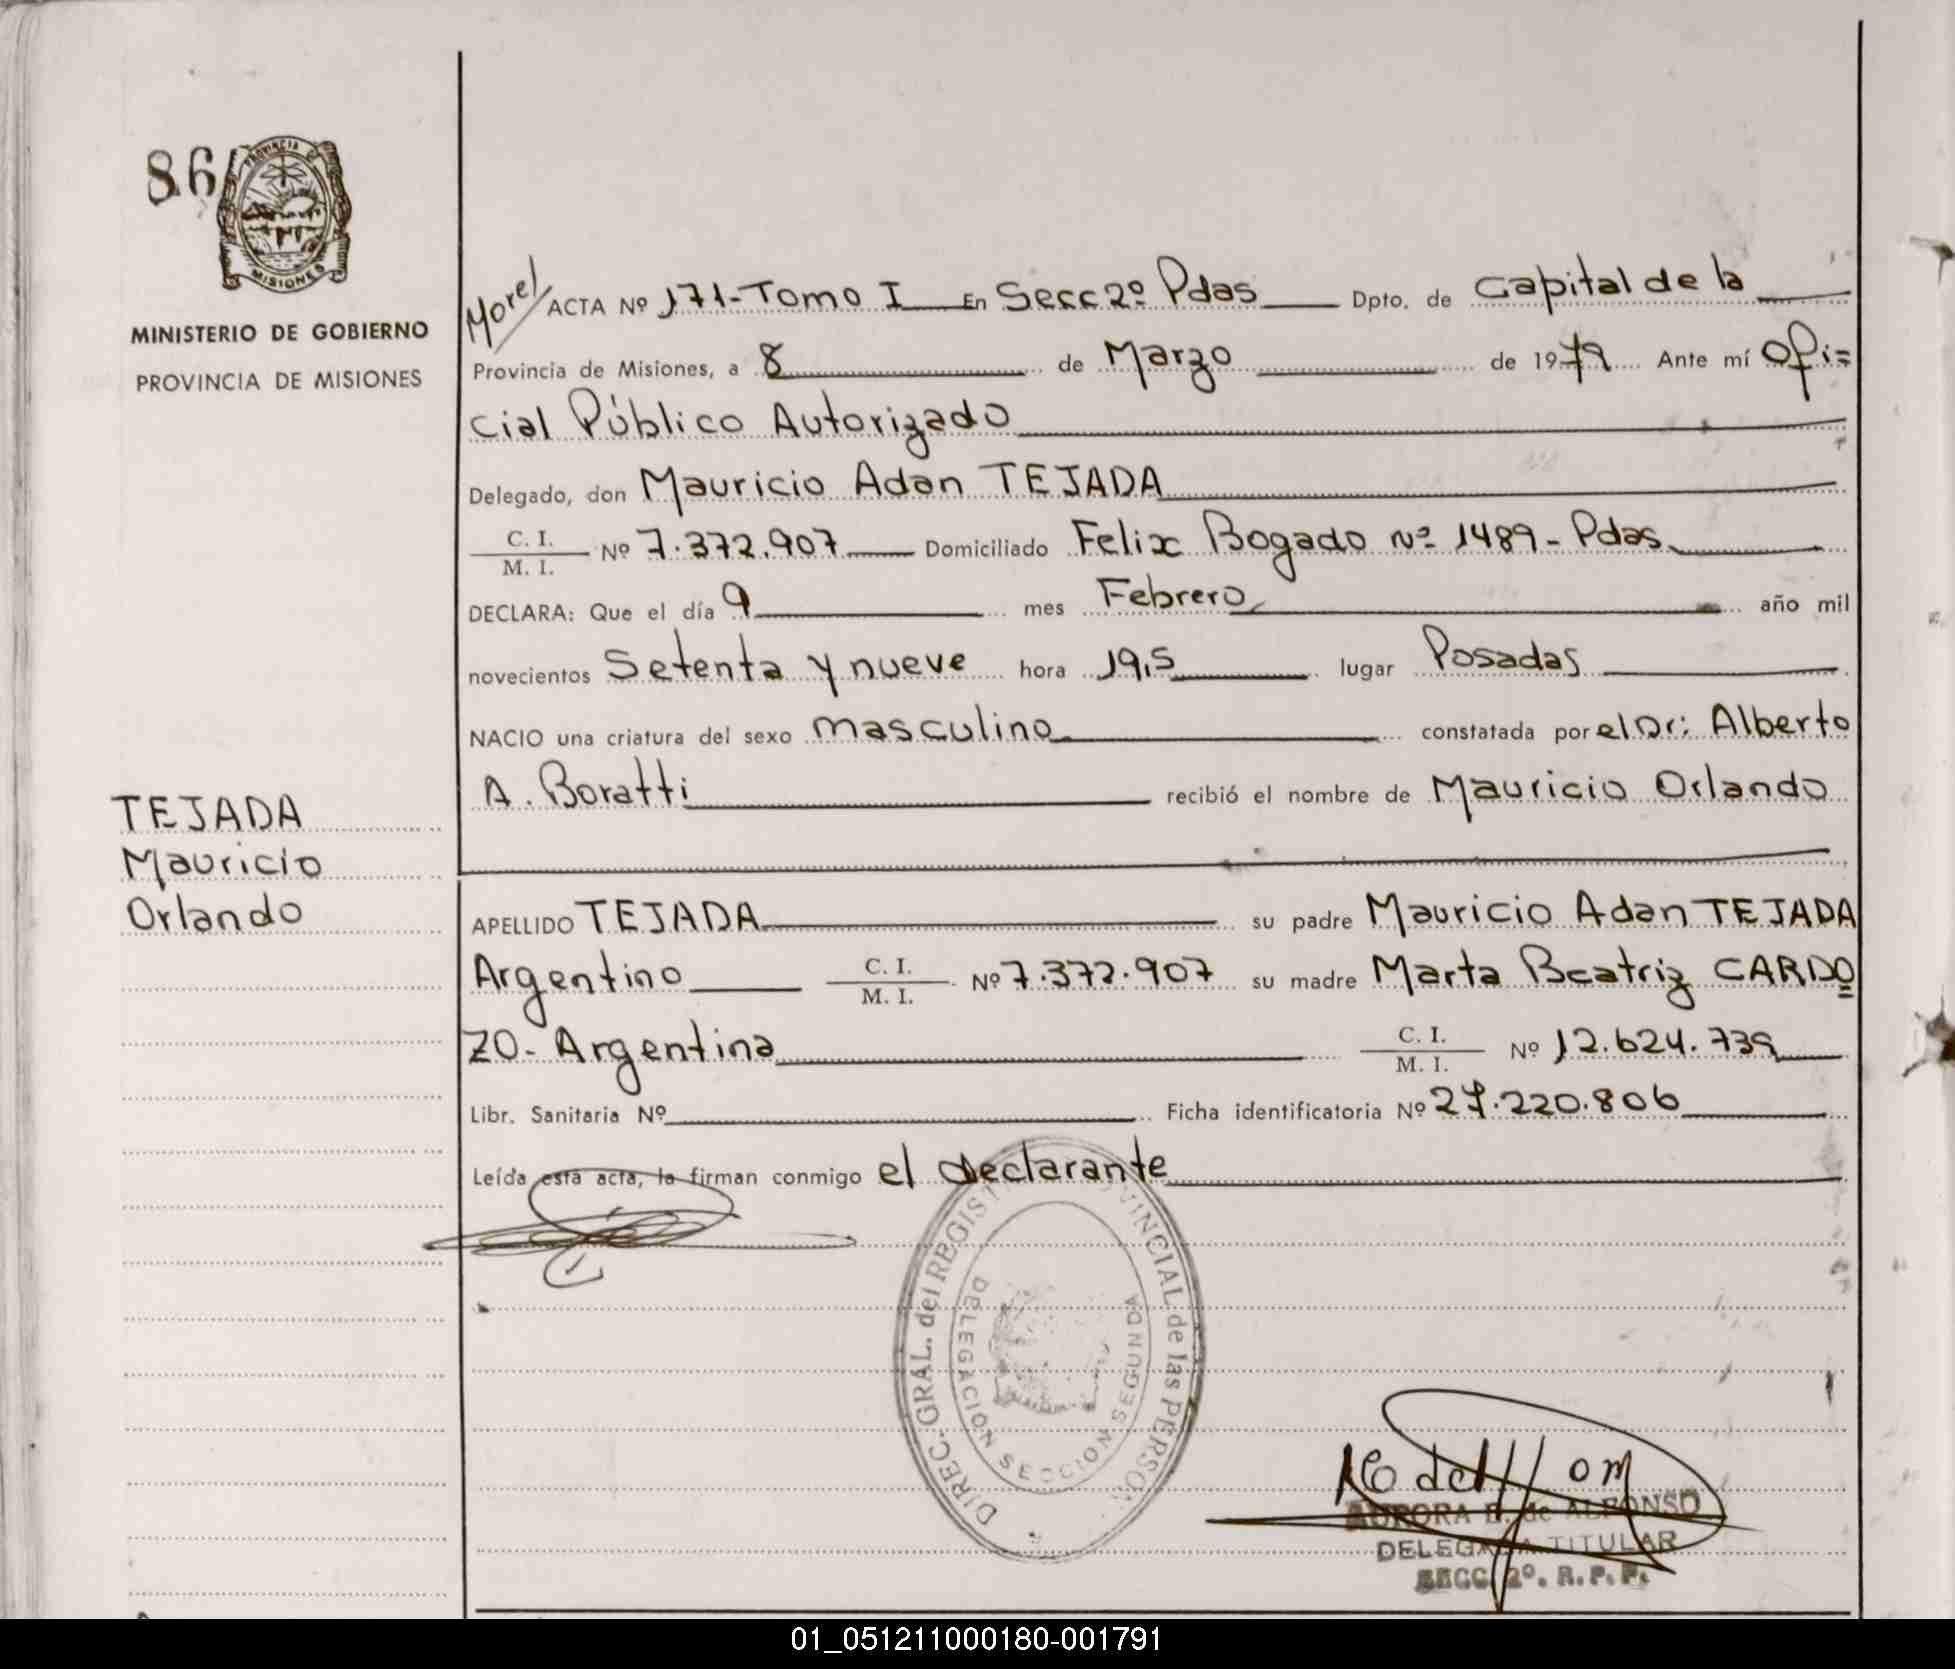 86
PROVINCIA DE
MISIONES
MINISTERIO DE GOBIERNO
PROVINCIA DE MISIONES
Morel
ACTA Nº 171-Tomo I En Secc 2º Pdas Dpto. de Capital de la
Provincia de Misiones, a 8 de Marzo de 1979 Ante mí Ofi=
cial Público Autorizado
Delegado, don Mauricio Adan TEJADA
C. I.
M. I. Nº 7.372.907 Domiciliado Felix Bogado Nº 1489 - Pdas
DECLARA: Que el día 9 mes Febrero año mil
novecientos Setenta y nueve hora 19,5 lugar Posadas
NACIO una criatura del sexo masculino constatada por el Dr: Alberto
A. Boratti recibió el nombre de Mauricio Orlando
TEJADA
Mauricio
Orlando
APELLIDO TEJADA su padre Mauricio Adan TEJADA
Argentino C. I.
M. I. Nº 7.372.907 su madre Marta Beatriz CARDO
ZO - Argentina C. I.
M. I. Nº 12.624.739
Libr. Sanitaria Nº Ficha identificatoria Nº 27.220.806
Leída esta acta, la firman conmigo el declarante
DIREC. GRAL. del REGIST VINCIAL de las PERSON
DELEGACION SECCION SEGUNDA
AURORA E. de ALFONSO
DELEGADA TITULAR
SECC. 2º. R. P. P.
01_051211000180-001791